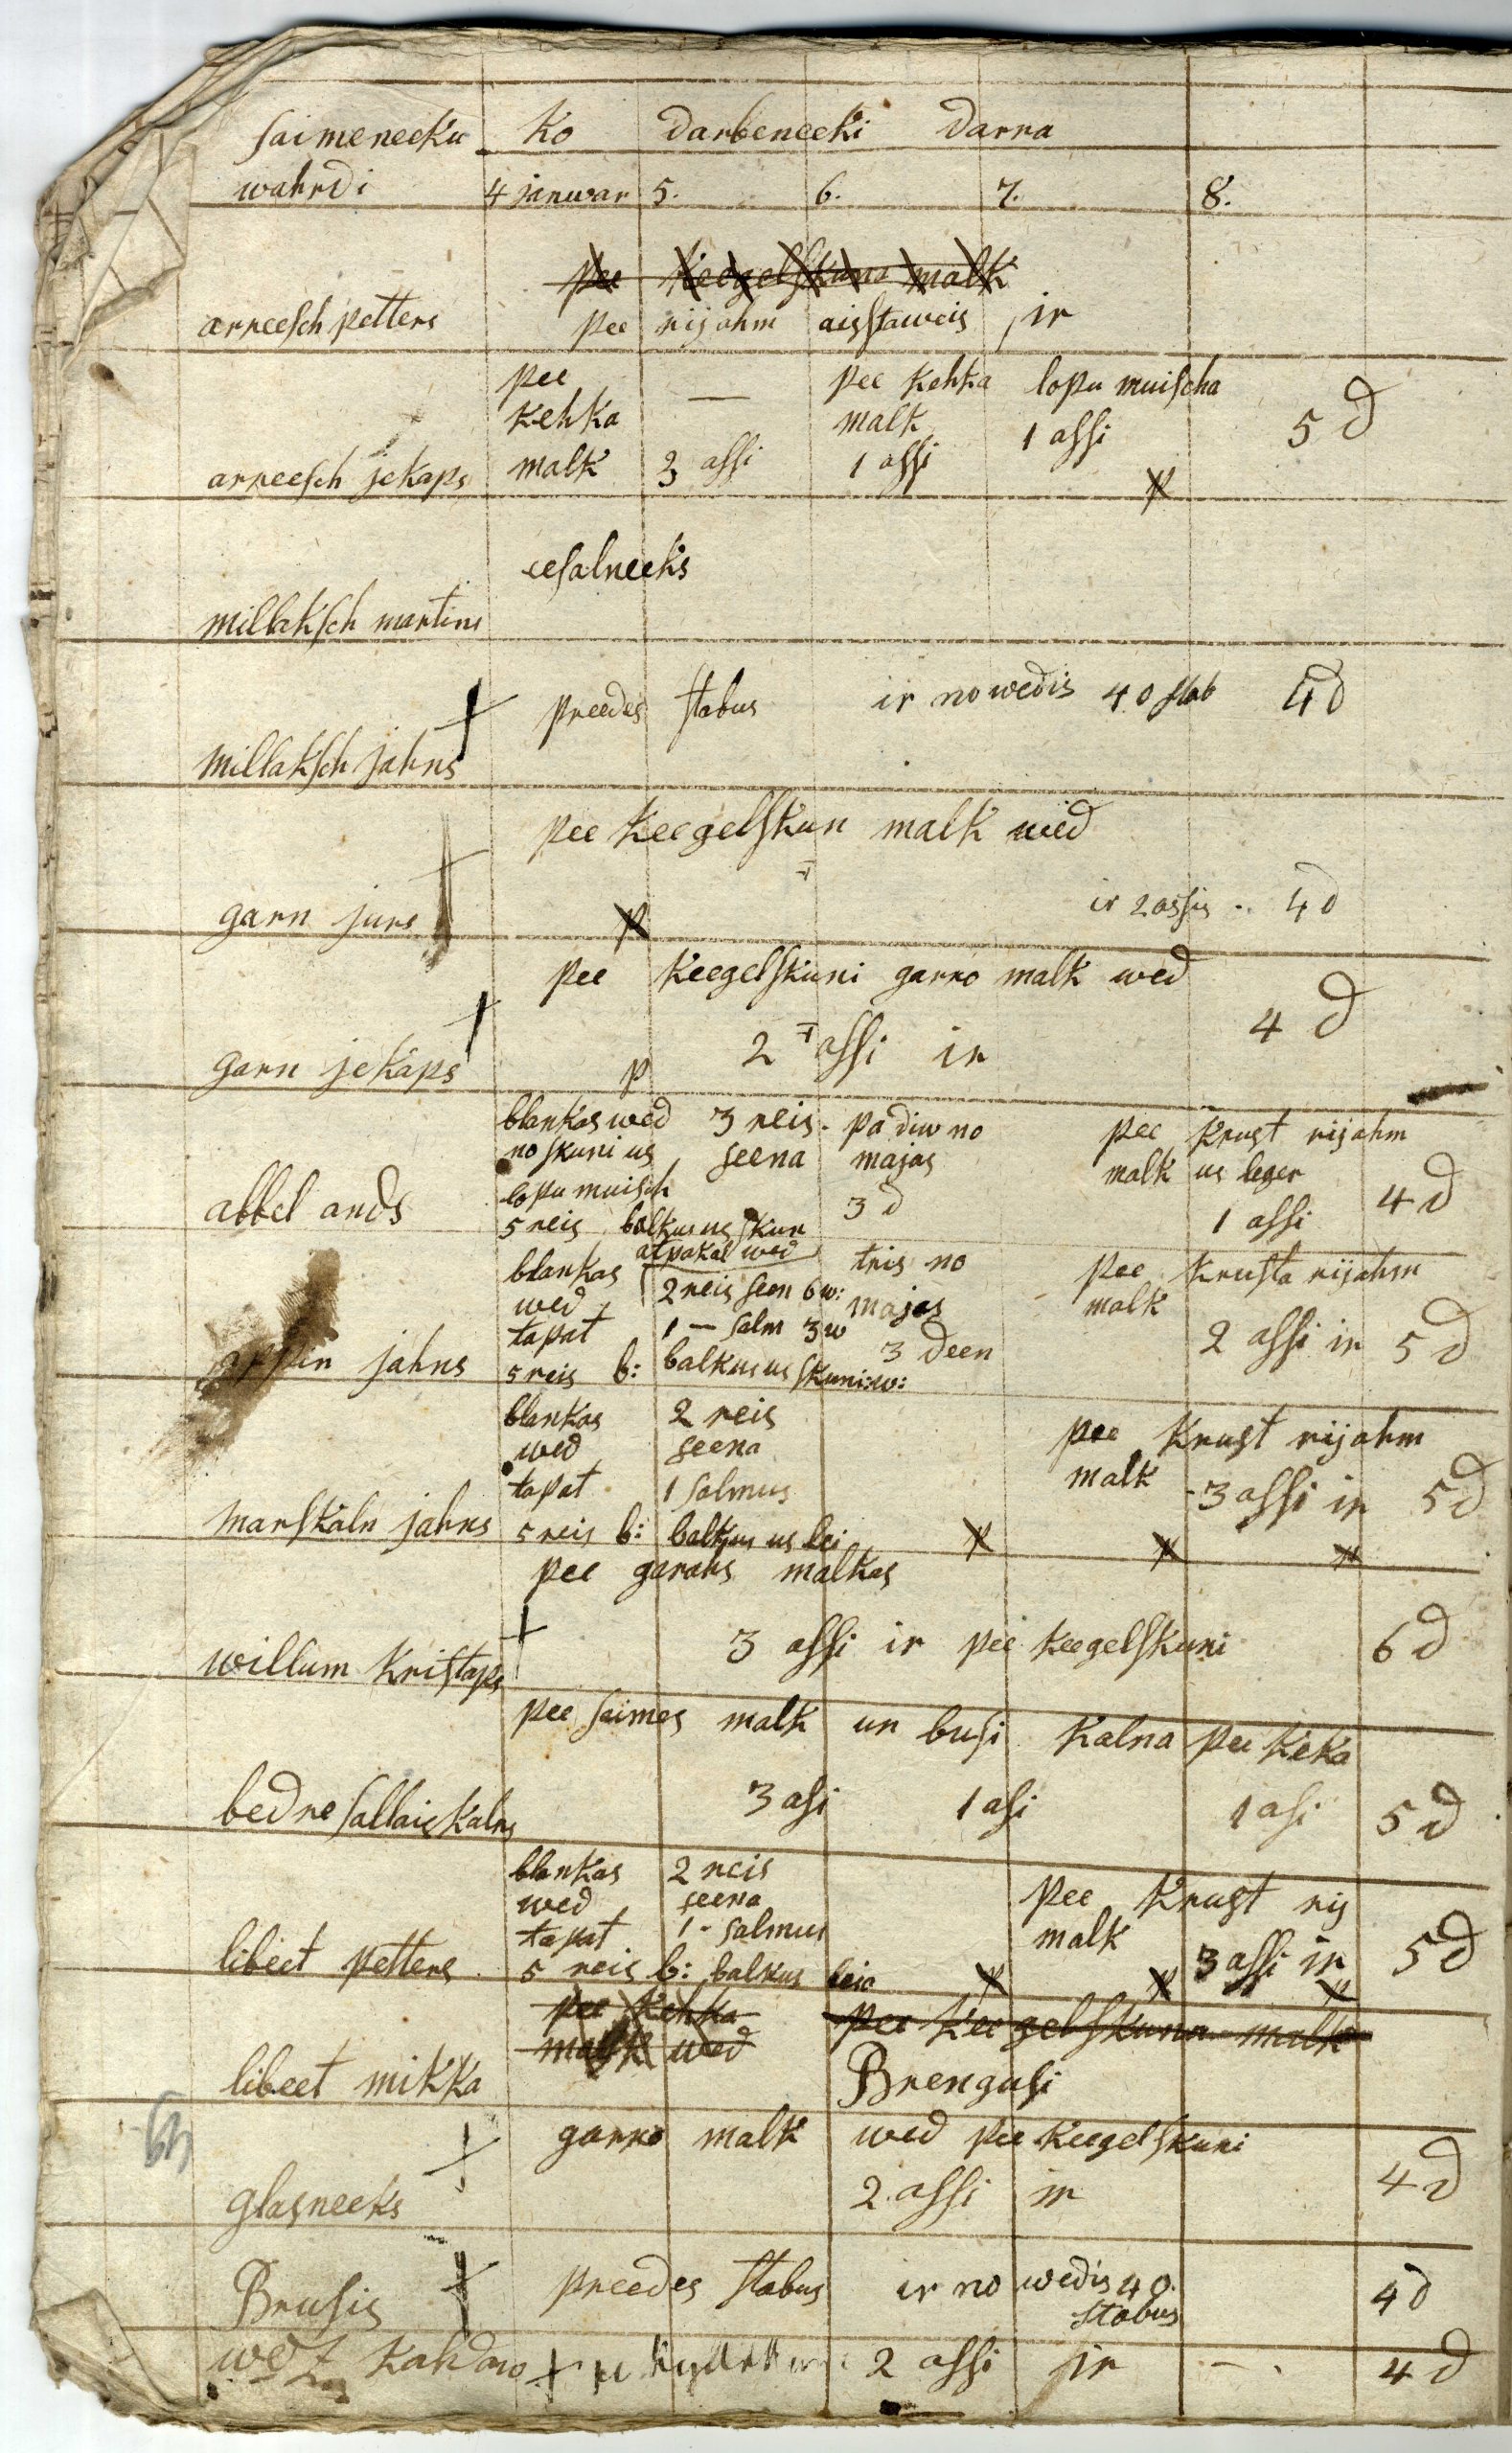 saimeneeku ko darbeneeki darra
wahrdi 4 janwar 5. 6. 7. 8.
pee keegelskuna malk
arreesch petters pee rijahm aisstaweis ir
pee — pee kehka lopu muischa
kehka malk 1 assi 5 d
arreesch jekaps malk 3 assi 1 assi
eesalneeks
millaksch martins
preedes stabus ir nowedis 40 stab 4 d
millaksch jahns
pee keegelskun malk wed
garn jurs ir 2 assis 4 d
pee keegelskuni garro malk wed
2 assi ir 4 d
garn jekaps
blankas wed 3 reis pa diw no pee krust rijahm
no skuni us seena majas malk us leger
abbel ands lopu muisch 3 d 1 assi 4 d
5 reis balkus us skun
blankas atpakal wed tris no pee krusta rijahm
wed 2 reis seen 6 w: majas malk
tapat 1 — salm 3 w 3 deen 2 assi ir 5 d
jahns 5 reis b: balkus us skuni: w:
blankas 2 reis pee krust rijahm
wed seena malk 3 assi ir 5 d
tapat 1 salmus
marskaln jahns 5 reis b: balkus us lei
pee garahs malkas
willum kristaps 3 assi ir pee keegelskuni 6 d
pee saimes malk un busi kalna pee keka
bedre sallaiskalns 3 asi 1 asi 1 asi 5 d
blankas 2 reis pee krust rij
wed seena malk 3 assi ir 5 d
tapat 1 - salmus
libeet petters 5 reis b: balkus leia
pee kehka pee keegelskuna malk
malk wed
libeet mikka Brengusi
garro malk wed pee keegelskuni
glasneeks 2 assi ir 4 d
Brusis preedes stabus ir no wedis 40 4 d
stabus
wez 2 assi ir — 4 d